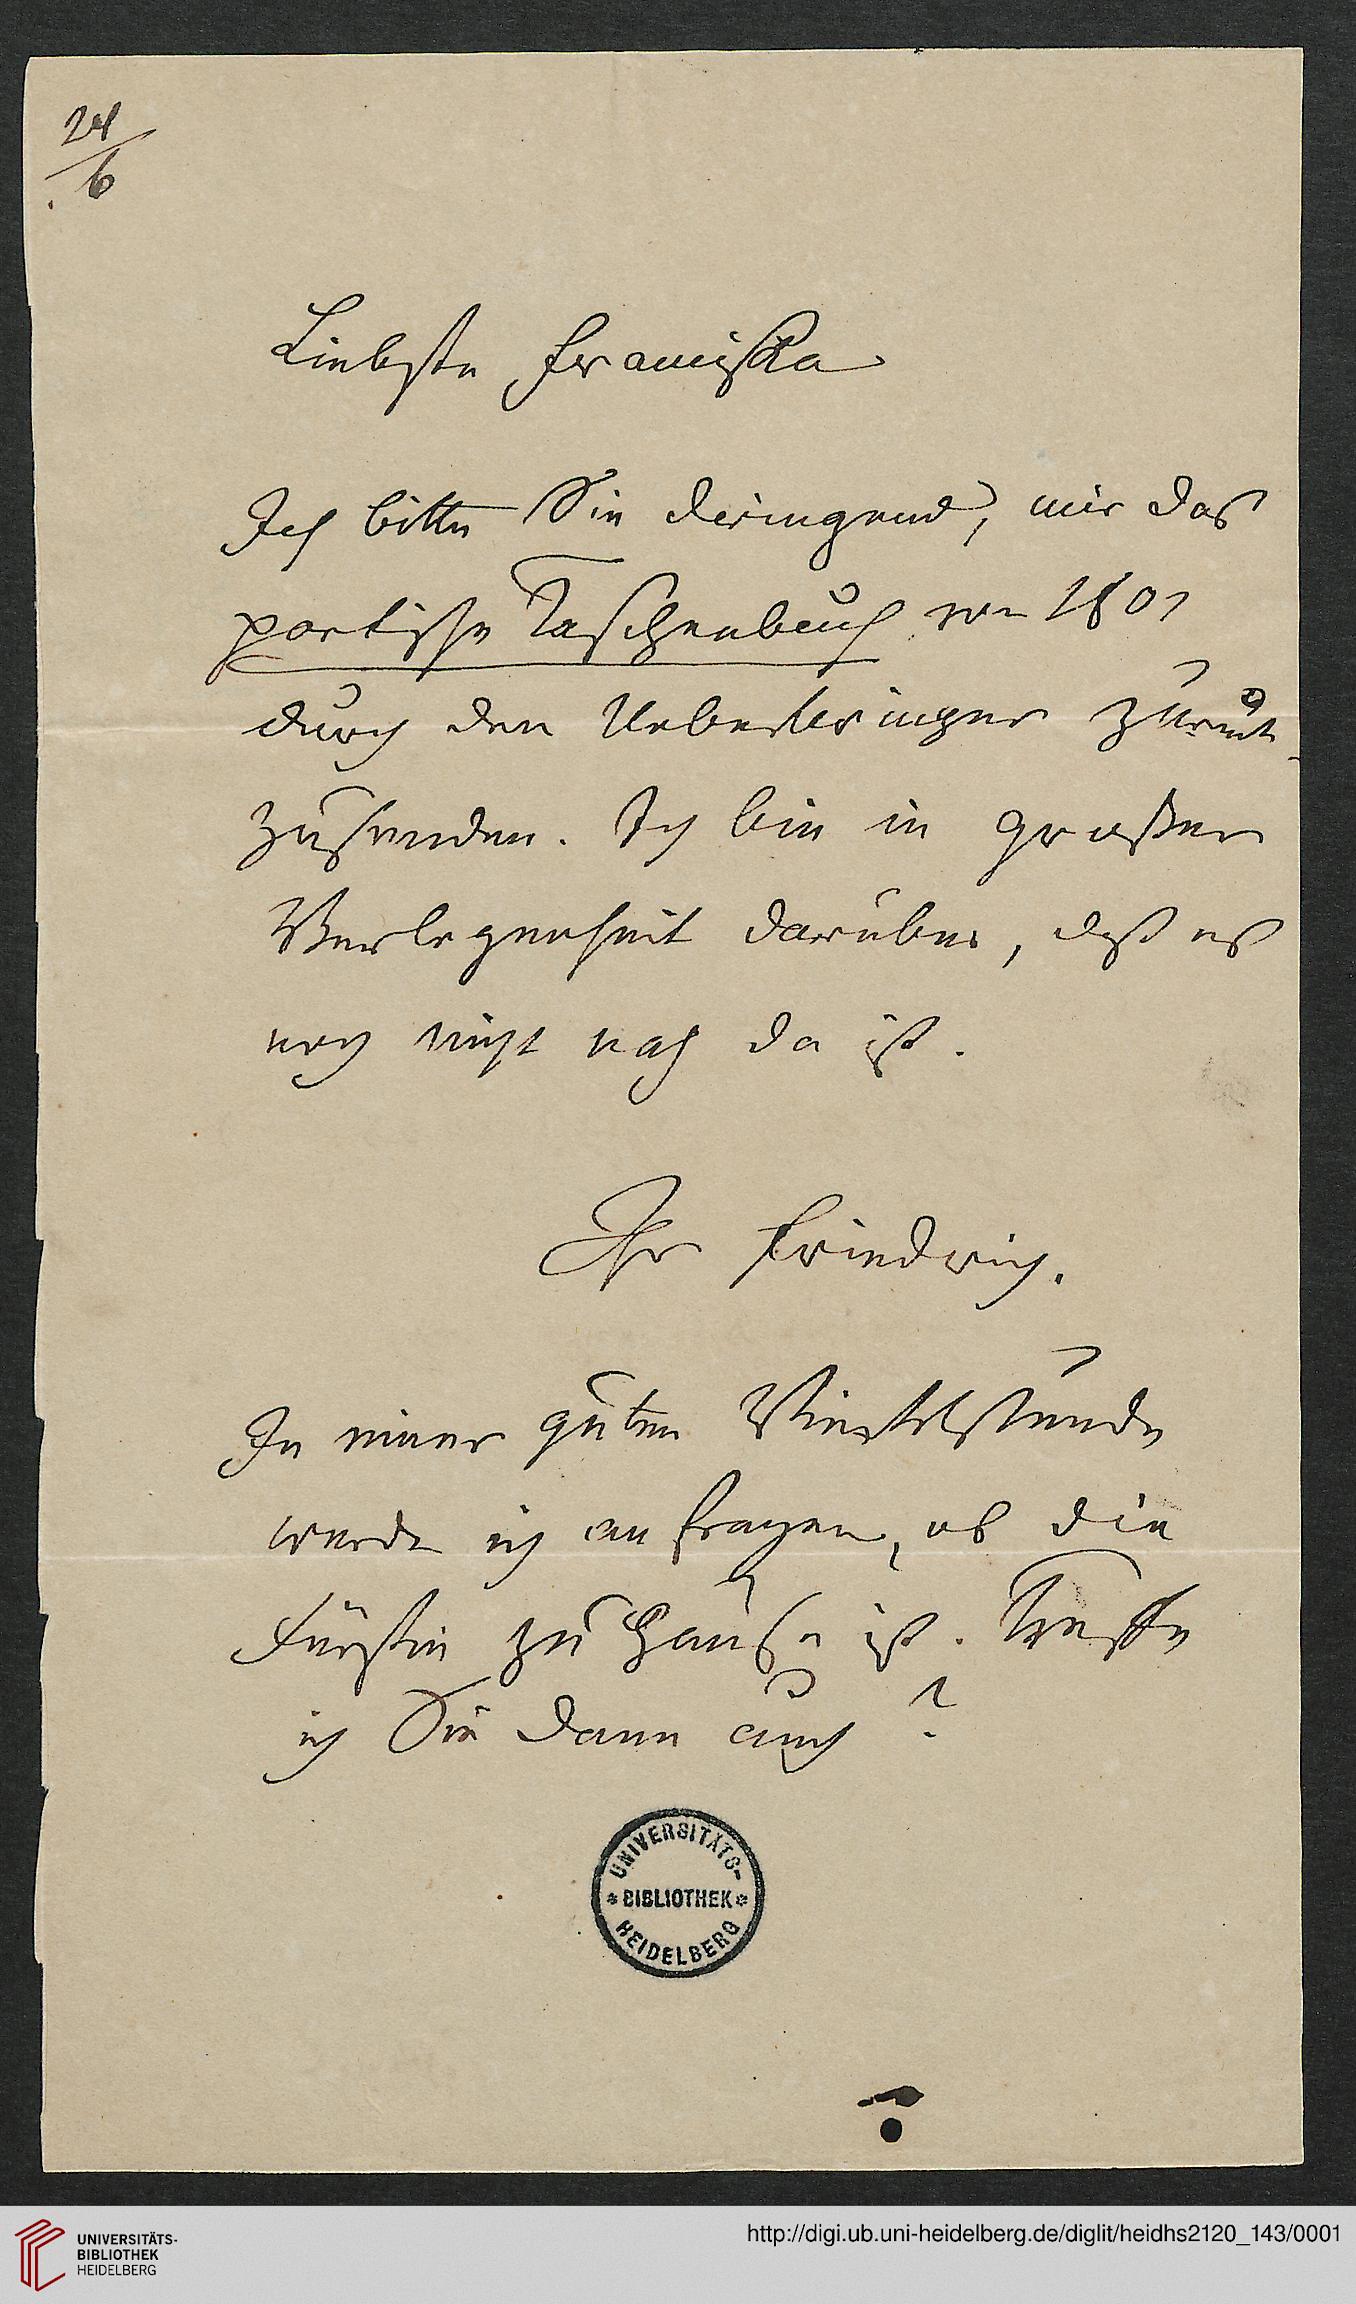 24
6
Liebste Franciska
Ich bitte Sie dringend, mir das
poetische Taschenbuch von 1801
durch den Ueberbringer zurück
zusenden. Ich bin in großer
Verlegenheit darüber, daß es
noch nicht da ist.
Ihr Friedrich.
In einer guten Viertelstunde
werde ich anfragen, ob die
Fürstin zu Hause ist. Treffe
ich Sie dann auch?
UNIVERSITÄTS-
* BIBLIOTHEK *
HEIDELBERG
UNIVERSITÄTS-
BIBLIOTHEK
HEIDELBERG
http://digi.ub.uni-heidelberg.de/diglit/heidhs2120_143/0001